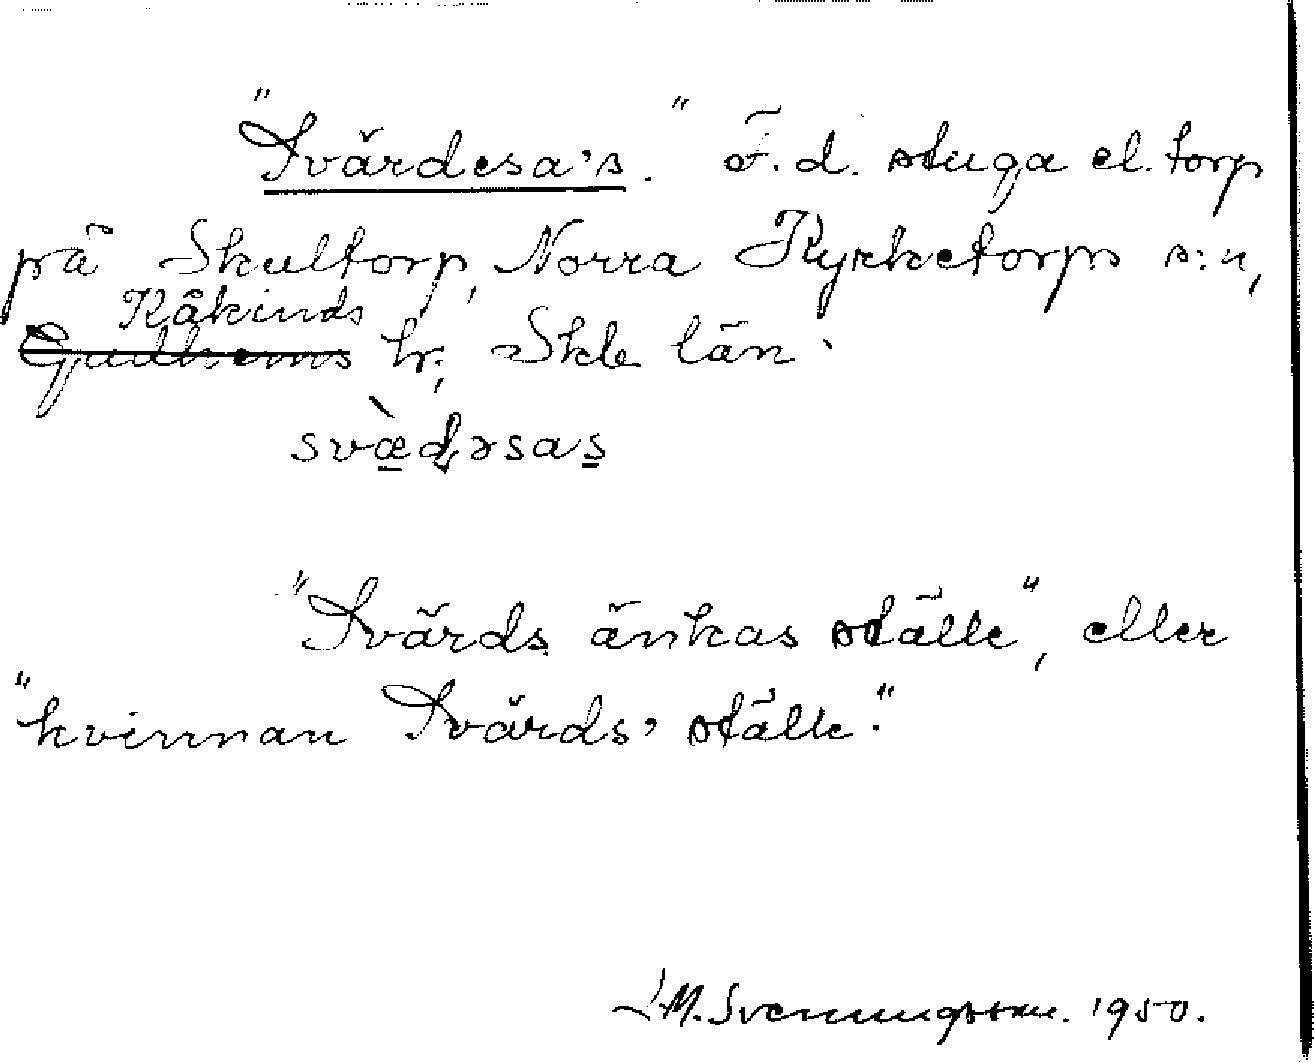 "Svärdesa's." F.d. stuga el. torp
på Skultorp, Norra Kyrketorps s:n,
Kåkinds
Gudhems hr, Skb län.
svæ̀ḍəsas̲
"Svärds änkas ställe", eller
"kvinnan Svärds' ställe."
M. Svenungsson. 1950.